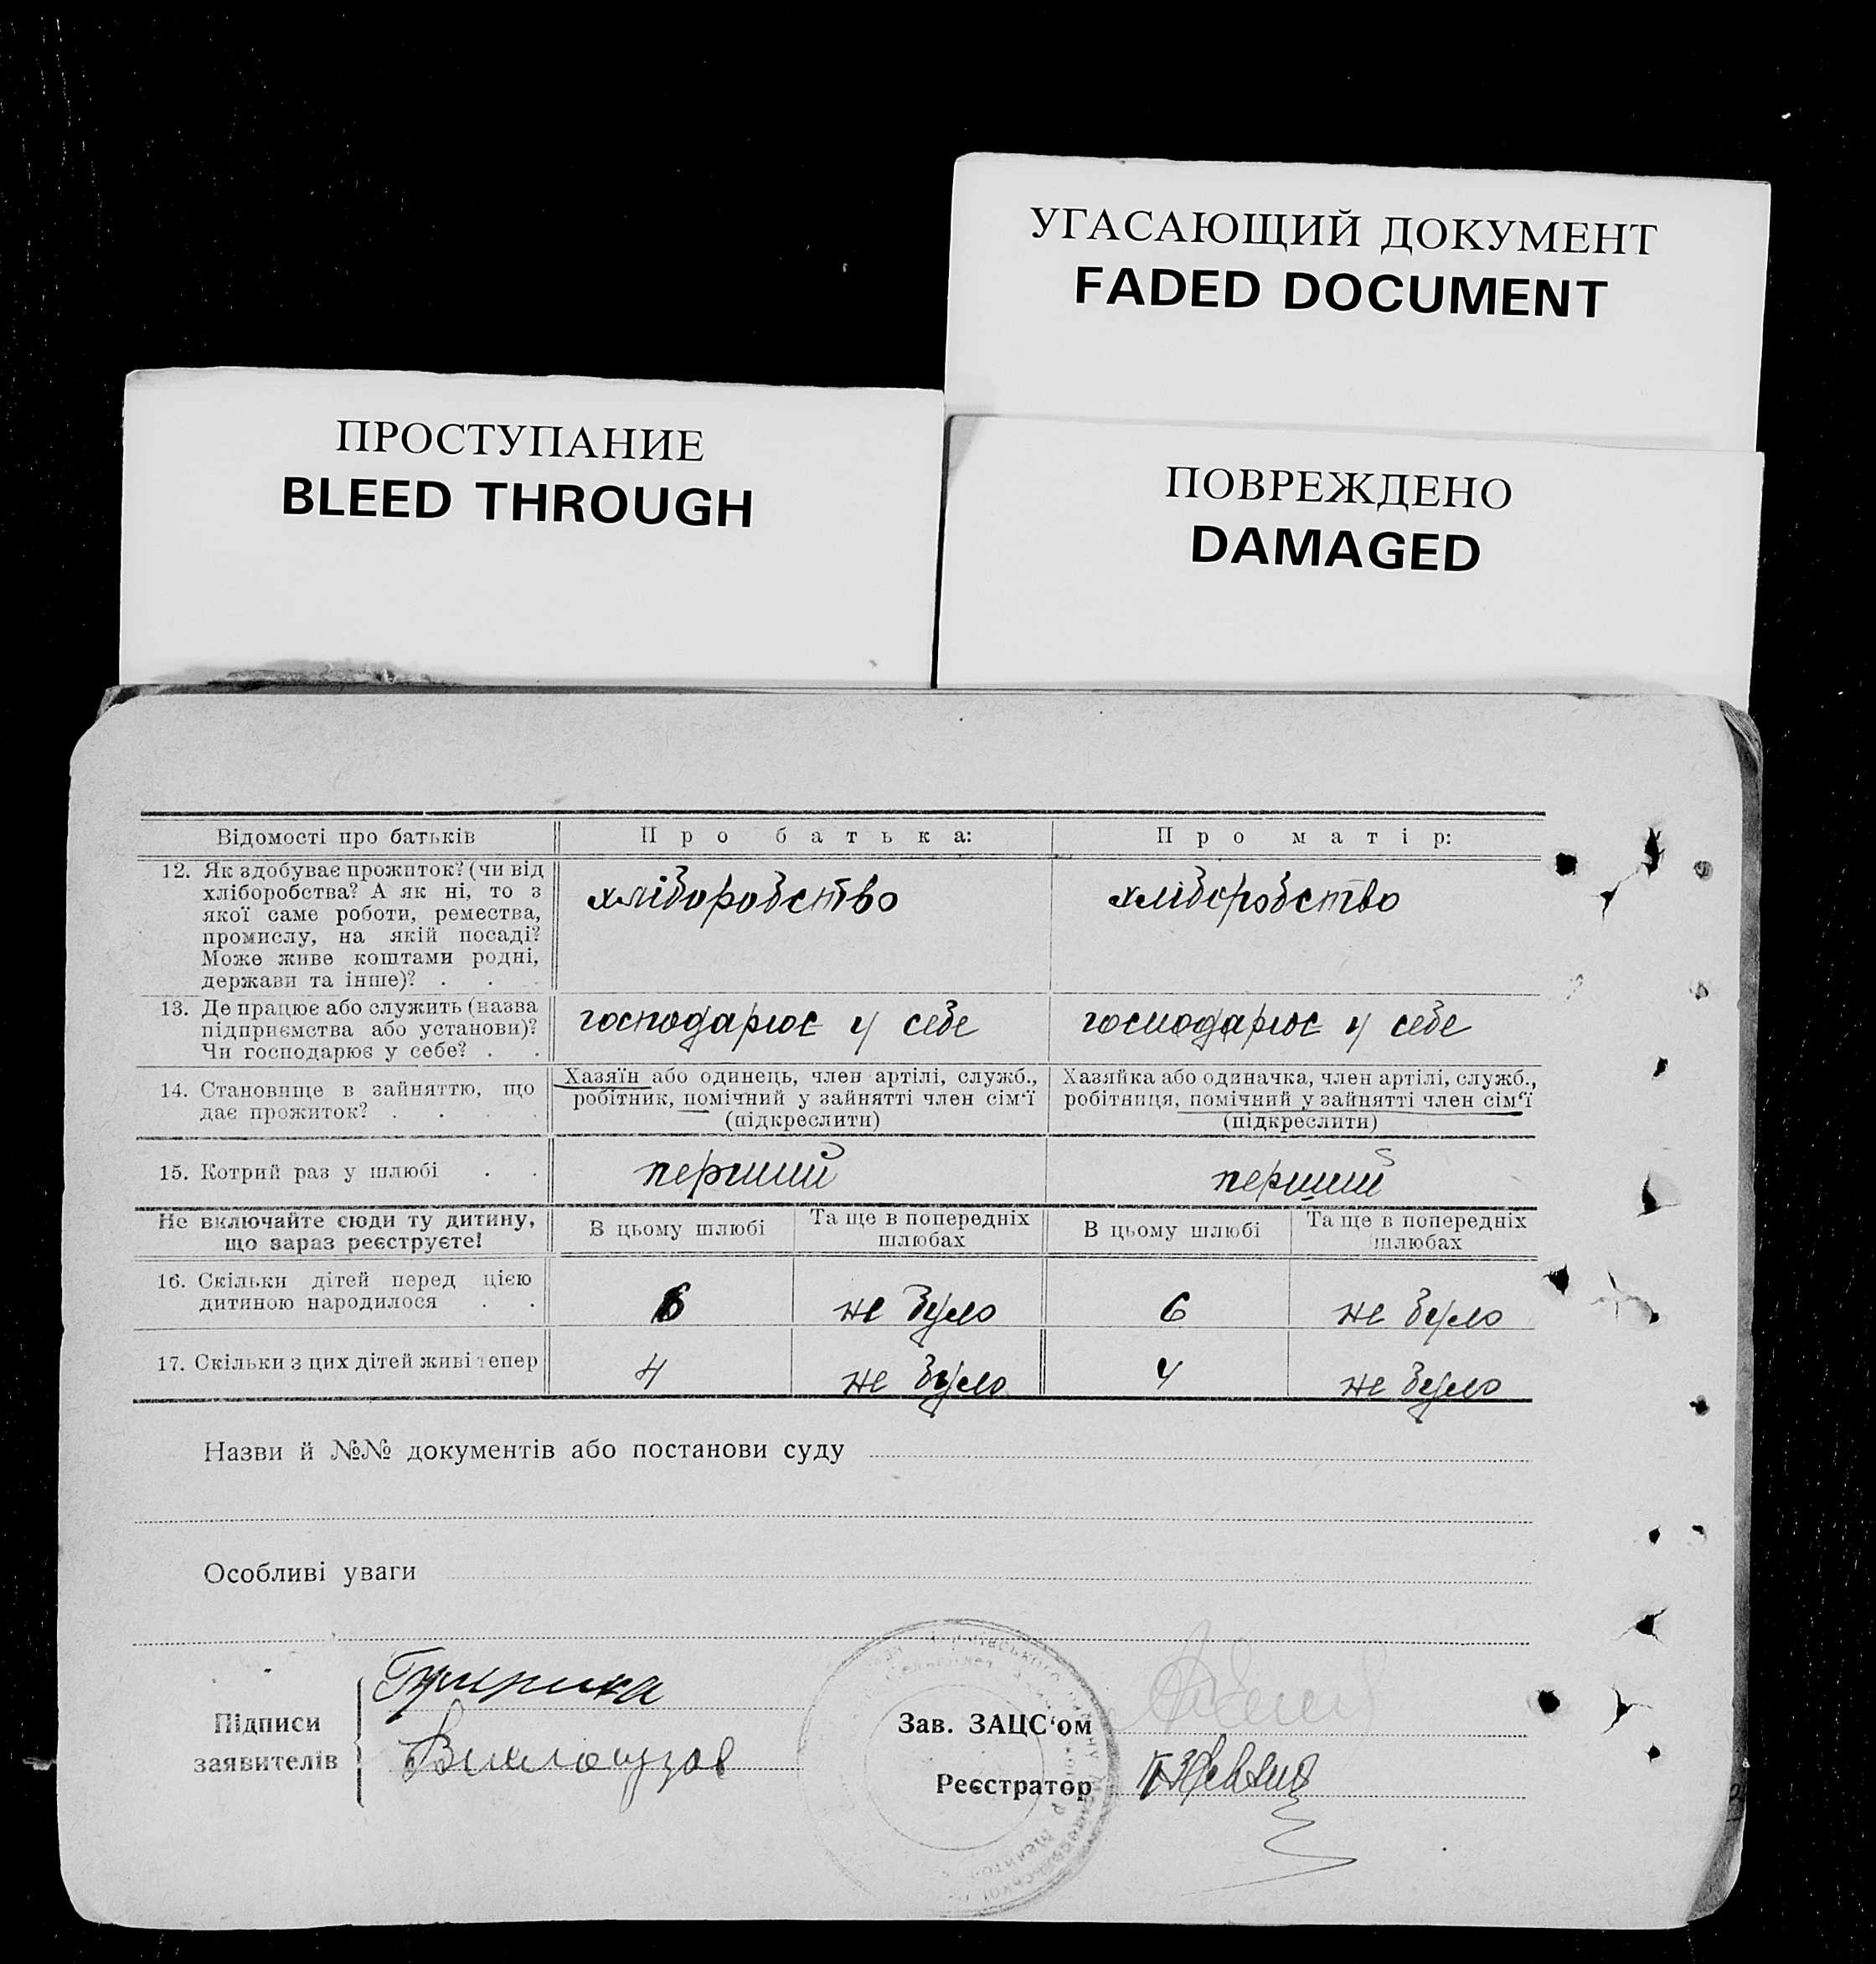 УГАСАЮЩИЙ ДОКУМЕНТ
FADED DOCUMENT
ПРОСТУПАНИЕ
BLEED THROUGH
ПОВРЕЖДЕНО
DAMAGED
Відомості про батьків Про батька: Про матір:
12. Як здобуває прожиток? (чи від
хліборобства? А як ні, то з
якої саме роботи, ремества,
промислу, на якій посаді?
Може живе коштами родні,
держави та інше)? . .
хліборобство хліборобство
13. Де працює або служить (назва
підприємства або установи)?
Чи господарює у себе? . .
господарює у себе господарює у себе
14. Становище в зайняттю, що
дає прожиток? . . . .
Хазяїн або одинець, член артілі, служб.,
робітник, помічний у зайнятті член сім‘ї
(підкреслити)
Хазяйка або одиначка, член артілі, служб.,
робітниця, помічний у зайнятті член сім‘ї
(підкреслити)
15. Котрий раз у шлюбі . . перший перший
Не включайте сюди ту дитину,
що зараз реєструєте!
В цьому шлюбі Та ще в попередніх
шлюбах
В цьому шлюбі Та ще в попередніх
шлюбах
16. Скільки дітей перед цією
дитиною народилося . .
6 не було 6 не було
17. Скільки з цих дітей живі тепер 4 не було 4 не було
Назви й №№ документів або постанови суду
Особливі уваги
Підписи
заявителів
Зав. ЗАЦС‘ом
Реєстратор